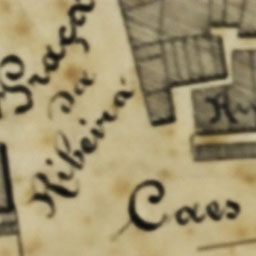 Praça
da
Ribeira
Caes